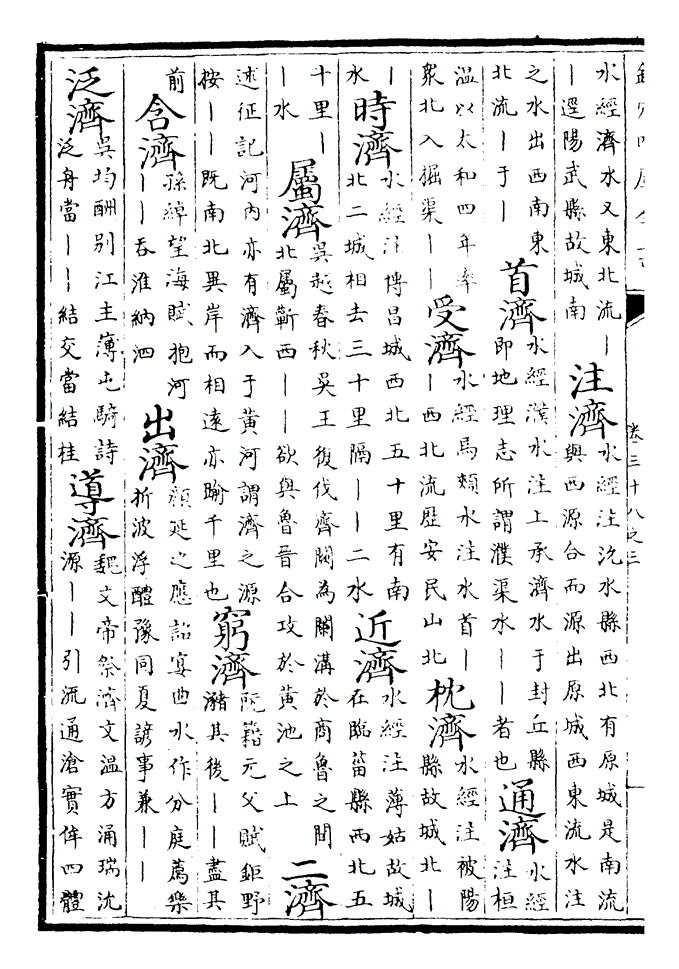 卷三十八之三
水經濟水又東北流丨
丨逕陽武縣故城南
注濟
水經注氿水縣西北有原城是南流
與西源合而源出原城西東流水注
之水出西南東
北流丨于丨丨
首濟
水經濮水注上承濟水于封丘縣
即地理志所謂濮渠水丨丨者也
通濟
水經
注桓
溫以太和四年率
衆北入掘渠丨丨
受濟
水經馬頰水注水首丨
丨西北流歴安民山北
枕濟
水經注被陽
縣故城北丨
丨
水
時濟
水經注博昌城西北五十里有南
北二城相去三十里隔丨丨二水
近濟
水經注薄姑故城
在臨菑縣西北五
十里丨
丨水
屬濟
吳越春秋吳王復伐齊闕為闌溝於商魯之間
北屬蘄西丨丨欲與魯晉合攻於黃池之上
二濟
述征記河內亦有濟入于黃河謂濟之源
按丨丨既南北異岸而相遠亦踰千里也
窮濟
阮籍元父賦鉅野
瀦其後丨丨盡其
前
含濟
孫綽望海賦抱河
丨丨吞淮納泗
出濟
顏延之應詔宴曲水作分庭薦樂
折波浮醴豫同夏諺事兼丨丨
泛濟
吳均酬別江主薄屯騎詩
泛舟當丨丨結交當結桂
導濟
魏文帝祭濟文溫方涌瑞沇
源丨丨引流通滄實侔四體